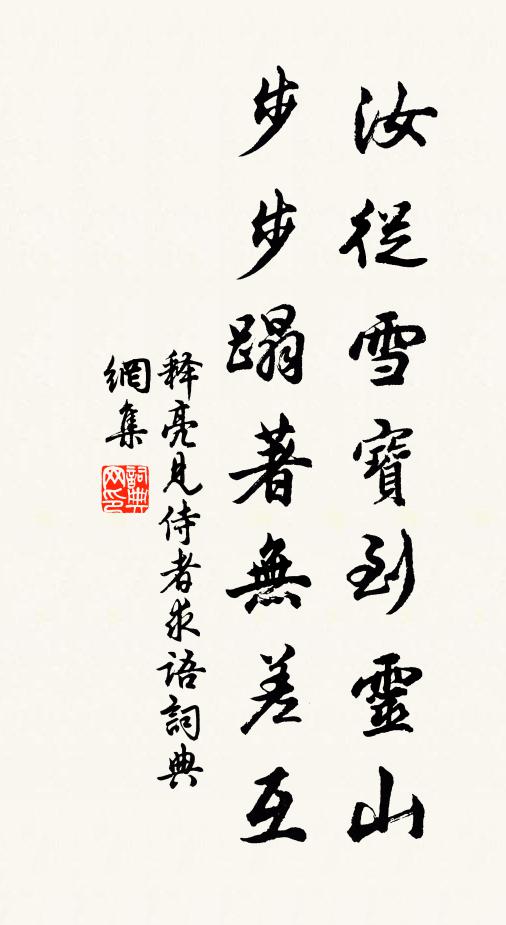 汝從雪寶到靈山
步步蹋著無差互
释亮見侍者求語詞典
網集
詞典
网印